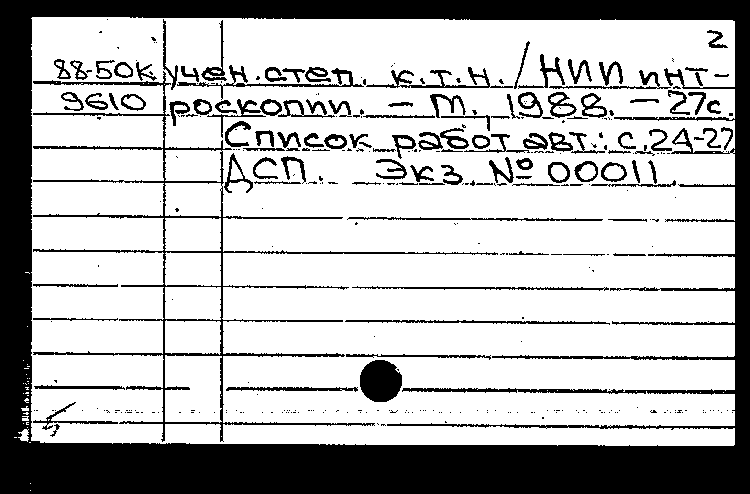 2
88-50К учен.степ. к.т.н. / НИИ инт-
9610 роскопии. – М., 1988. – 27с.
Список работ авт.: с.24-27
ДСП. Экз. № 00011.